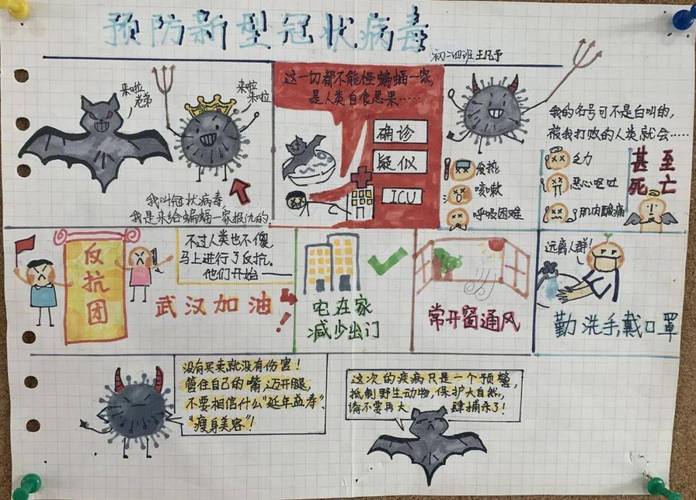 预防新型冠状病毒
初二四班 王凡予
来啦
兄弟
来啦
来啦
我叫冠状病毒
我是来给蝙蝠一家报仇的
这一切都不能怪蝙蝠一家
是人类自食恶果……
确诊
疑似
ICU
我的名号可不是白叫的,
被我打败的人类就会……
发烧
咳嗽
呼吸困难
乏力
恶心呕吐
肌肉酸痛
甚至
死亡
反抗团
不过人类也不傻
马上进行了反抗。
他们开始——
武汉加油!
宅在家
减少出门
常开窗通风
远离人群!
勤洗手戴口罩
没有买卖就没有伤害!
管住自己的嘴,迈开腿,
不要相信什么“延年益寿”
“瘦身美容”!
这次的疾病只是一个预警,
抵制野生动物,保护大自然,
不要再大肆捕杀了!